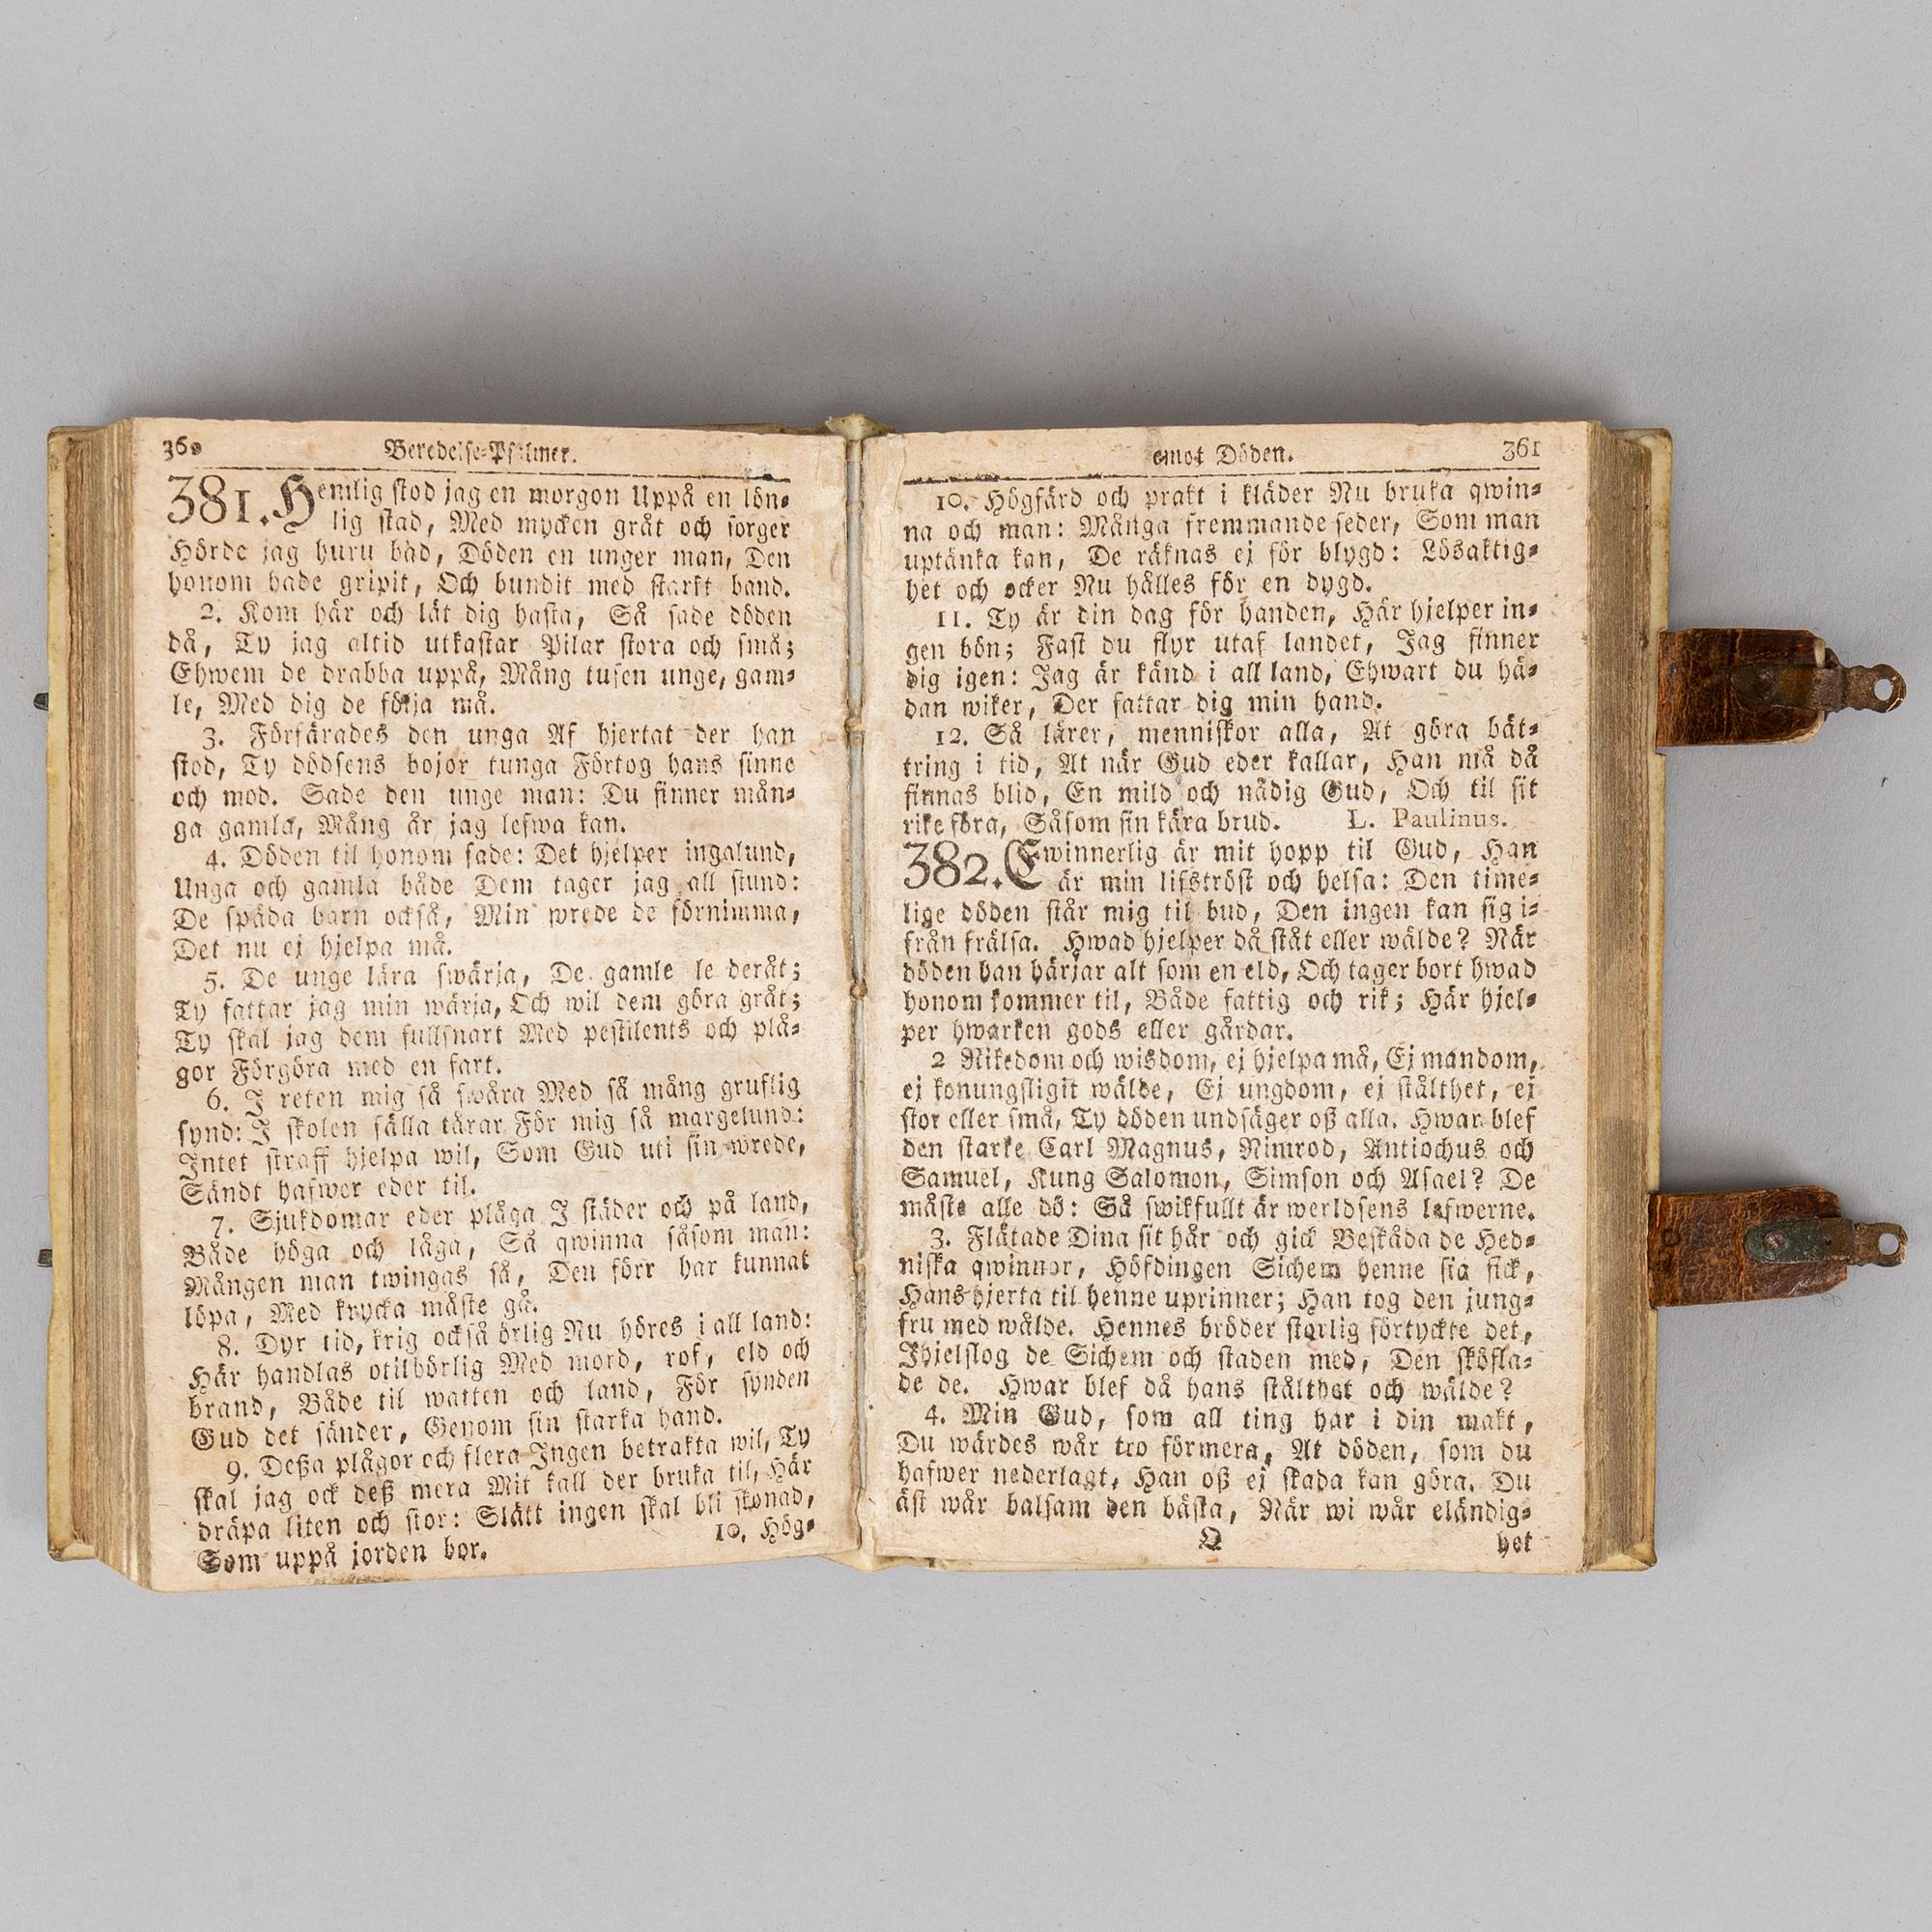 360
Beredelse-Psalmer.
381. Hemlig stod jag en morgon Uppå en lön-
lig stad, Med mycken gråt och sorger
Hörde jag huru bad, Döden en unger man, Den
honom hade gripit, Och bundit med starkt band.
2. Kom här och låt dig hasta, Så sade döden
då, Ty jag altid utkastar Pilar stora och små;
Ehwem de drabba uppå, Mång tusen unge, gam-
le, Med dig de följa må.
3. Förfärades den unga Af hjertat der han
stod, Ty dödsens bojor tunga Förtog hans sinne
och mod. Sade den unge man: Du finner mån-
ga gamla, Mång år jag lefwa kan.
4. Döden til honom sade: Det hjelper ingalund,
Unga och gamla både Dem tager jag all stund:
De späda barn också, Min wrede de förnimma,
Det nu ej hjelpa må.
5. De unge lära swärja, De gamle le deråt;
Ty fattar jag min wärja, Och wil dem göra gråt;
Ty skal jag dem fullsnart Med pestilents och plå-
gor Förgöra med en fart.
6. I reten mig så swåra Med så mång gruflig
synd: I skolen fälla tårar För mig så margelund:
Intet straff hjelpa wil, Som Gud uti sin wrede,
Sändt hafwer eder til.
7. Sjukdomar eder plåga I städer och på land,
Både höga och låga, Så qwinna såsom man:
Mången man twingas så, Den förr har kunnat
löpa, Med krycka måste gå.
8. Dyr tid, krig också örlig Nu höres i all land:
Här handlas otilbörlig Med mord, rof, eld och
brand, Både til watten och land, För synden
Gud det sänder, Genom sin starka hand.
9. Deßa plågor och flera Ingen betrakta wil, Ty
skal jag ock deß mera Mit kall der bruka til, Här
dräpa liten och stor: Slätt ingen skal bli skonad,
Som uppå jorden bor.
10. Hög-
emot Döden.
361
10. Högfärd och prakt i kläder Nu bruka qwin-
na och man: Många fremmande seder, Som man
uptänka kan, De räknas ej för blygd: Lösaktig-
het och ocker Nu hålles för en dygd.
11. Ty är din dag för handen, Här hjelper in-
gen bön; Fast du flyr utaf landet, Jag finner
dig igen: Jag är känd i all land, Ehwart du hä-
dan wiker, Der fattar dig min hand.
12. Så lärer, menniskor alla, At göra bät-
tring i tid, At när Gud eder kallar, Han må då
finnas blid, En mild och nådig Gud, Och til sit
rike föra, Såsom sin kära brud. L. Paulinus.
382. Ewinnerlig är mit hopp til Gud, Han
är min lifströst och helsa: Den time-
lige döden står mig til bud, Den ingen kan sig i-
från frälsa. Hwad hjelper då ståt eller wälde? När
döden han härjar alt som en eld, Och tager bort hwad
honom kommer til, Både fattig och rik; Här hjel-
per hwarken gods eller gårdar.
2 Rikedom och wisdom, ej hjelpa må, Ej mandom,
ej konungsligit wälde, Ej ungdom, ej stålthet, ej
stor eller små, Ty döden undsäger oß alla. Hwar blef
den starke Carl Magnus, Nimrod, Antiochus och
Samuel, Kung Salomon, Simson och Asael? De
måste alle dö: Så swikfullt är werldsens lefwerne.
3. Flätade Dina sit hår och gick Beskåda de Hed-
niska qwinnor, Höfdingen Sichem henne sia fick,
Hans hjerta til henne uprinner; Han tog den jung-
fru med wälde. Hennes bröder storlig förtyckte det,
Ihjelslog de Sichem och staden med, Den sköfla-
de de. Hwar blef då hans stålthet och wälde?
4. Min Gud, som all ting har i din makt,
Du wärdes wår tro förmera, At döden, som du
hafwer nederlagt, Han oß ej skada kan göra. Du
äst wår balsam den bästa, När wi wår eländig-
Q
het